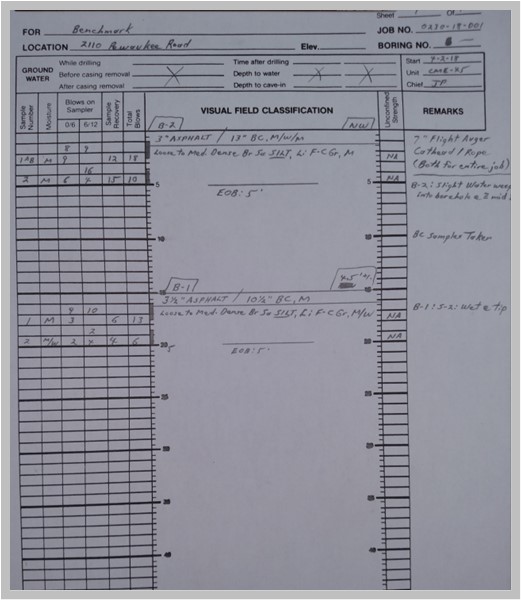 Sheet 1 Of
FOR Benchmark JOB NO. 0230-18-001
LOCATION 2110 Pewaukee Road Elev. BORING NO.
GROUND WATER
While drilling Time after drilling
Before casing removal X Depth to water X X
After casing removal Depth to cave-in
Start 4-2-18
Unit CME-45
Chief JP
Sample Number Moisture Blows on Sampler 0/6 6/12 Sample Recovery Total Blows VISUAL FIELD CLASSIFICATION Unconfined Strength REMARKS
B-2 NW
3" ASPHALT / 13" BC, M/w/m
8 9
Loose to Med. Dense Br Sa SILT, Li F-C Gr, M
1AB M 9 12 18 NA
16
2 M 6 4 15 10 NA
5 5
EOB: 5'
7" Flight Auger
Cathead / Rope
(Both for entire job)
B-2: Slight Water
into borehole @ mid
10 10
BC Samples Taken
B-1
3½" ASPHALT / 10½" BC, M
9 10
Loose to Med. Dense Br Sa SILT, Li F-C Gr, M/W
1 M 3 6 13 NA
B-1: S-2: Wet @ tip
2 NA
2 M/W 2 4 4 6
5
EOB: 5'